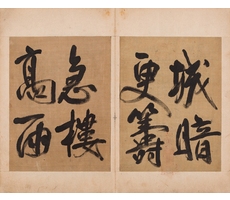 城暗
更籌
急樓
高雨